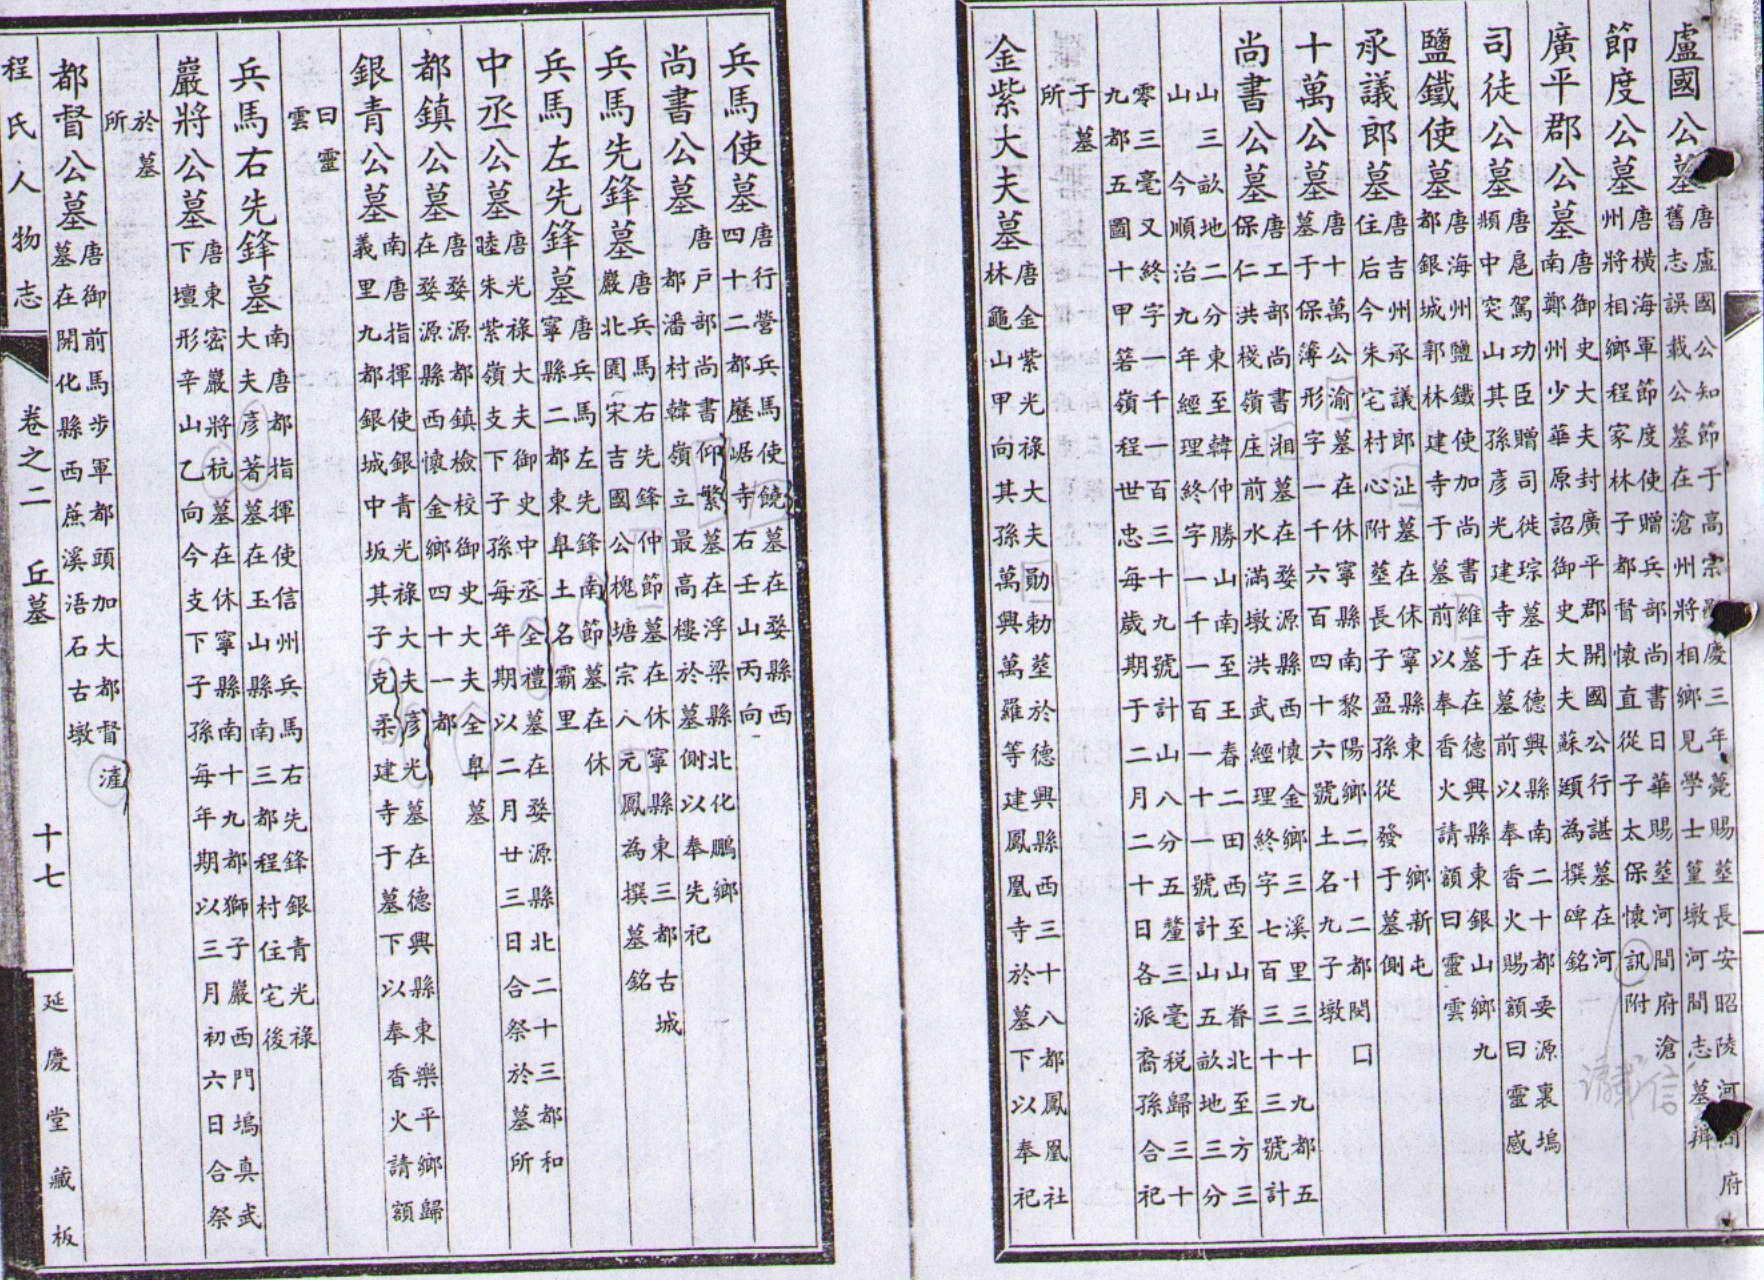 盧國公墓
唐盧國公知節于高宗顯慶三年薨賜塋長安昭陵河間府
舊志誤載公墓在滄州將相鄉見學士篁墩河間志墓辨
節度公墓
唐橫海軍節度使贈兵部尚書日華賜塋河間府滄
州將相鄉程家林子都督懷直從子太保懷訊附
廣平郡公墓
唐御史大夫封廣平郡開國公行諶墓在河
南鄭州少華原詔御史大夫蘇頲為撰碑銘
司徒公墓
唐扈駕功臣贈司徒琮墓在德興縣南二十都婺源裏塢
頻中突山其孫彥光建寺于墓前以奉香火賜額曰靈感
鹽鐵使墓
唐海州鹽鐵使加尚書維墓在德興縣東銀山鄉九
都銀城郭林建寺于墓前以奉香火請額曰靈雲
承議郎墓
唐吉州承議郎沚墓在休寧縣東鄉新屯
住后今朱宅村心附塟長子盈孫從發于墓側
十萬公墓
唐十萬公渝墓在休寧南黎陽鄉二十二都閔口
墓于保簿形字一千六百四十六號土名九子墩
尚書公墓
唐工部尚書湘墓在婺源縣西懷金鄉三溪里三十九都五
保仁洪棧嶺庄前水滿墩洪武經理終字七百三十三號計
山三畝地二分東至韓仲勝山南至王春二田西至山脊北至方三
山今順治九年經理終字一千一百一十一號計山五畝地三分
零三毫又終字一千一百三十九號計山八分五釐三毫税歸三十
九都五圖十甲箬嶺程世忠每歲期于二月二十日各派裔孫合祀
于墓
所
金紫大夫墓
唐金紫光祿大夫勛勅塟於德興縣西三十八都鳳凰社
林龜山甲向其孫萬興萬羅等建鳳凰寺於墓下以奉祀
兵馬使墓
唐行營兵馬使饒墓在婺縣西
四十二都歷崌寺右壬山丙向
尚書公墓
唐戶部尚書仰繁墓在浮梁縣北化鵬鄉
都潘村韓嶺立最高樓於墓側以奉先祀
兵馬先鋒墓
唐兵馬右先鋒仲節墓在休寧縣東三都古城
巖北園宋吉國公槐塘宗人元鳳為撰墓銘
兵馬左先鋒墓
唐兵馬左先鋒南節墓在休
寧縣二都東皐土名霸里
中丞公墓
唐光祿大夫御史中丞全禮墓在婺源縣北二十三都和
睦朱紫嶺支下子孫每年期以二月廿三日合祭於墓所
都鎮公墓
唐婺源都鎮檢校御史大夫全皐墓
在婺源縣西懷金鄉四十一都
銀青公墓
南唐指揮使銀青光祿大夫彥光墓在德興縣東樂平鄉歸
義里九都銀城中坂其子克柔建寺于墓下以奉香火請額
曰靈
雲
兵馬右先鋒墓
南唐都指揮使信州兵馬右先鋒銀青光祿
大夫彥著墓在玉山縣南三都程村住宅後
巖將公墓
唐東密巖將杭墓在休寧縣南十九都獅子巖西門塢真武
下壇形辛山乙向今支下子孫每年期以三月初六日合祭
於墓
所
都督公墓
唐御前馬步軍都頭加大都督滻
墓在開化縣西蔗溪浯石古墩
程氏人物志
卷之二
丘墓
十七
延慶堂藏板